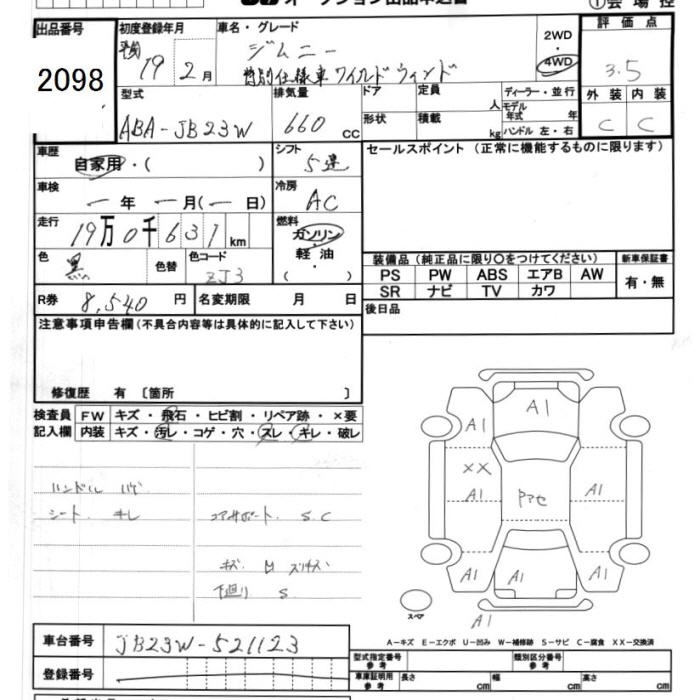 オークション出品申込書
①会場控
出品番号 2098
初度登録年月 平成 19 2月
車名・グレード ジムニー
特別仕様車 ワイルドウィンド
2WD・4WD
評価点 3.5
外装 内装
C C
型式 ABA-JB23W
排気量 660 cc
ドア 定員 人
形状 積載 kg
ディーラー・並行
モデル年式 年
ハンドル 左・右
車歴 自家用・( )
シフト 5速
車検 ー年 ー月(ー日)
冷房 AC
走行 19万0千631km
燃料 ガソリン・軽油・( )
色 黒 色替 色コード ZJ3
R券 8,540円
名変期限 月 日
セールスポイント (正常に機能するものに限ります)
装備品 (純正品に限り〇をつけてください) 新車保証書
PS PW ABS エアB AW 有・無
SR ナビ TV カワ
後日品
注意事項申告欄 (不具合内容等は具体的に記入して下さい)
修復歴 有 〔箇所 〕
検査員 FW キズ・飛石・ヒビ割・リペア跡・×要
記入欄 内装 キズ・汚レ・コゲ・穴・スレ・キレ・破レ
ハンドル ハゲ
シート キレ コアサポート S.C
下廻り S
A1
A1
XX
A1 A1
A1 A1 A1
スペア
A1
A-キズ E-エクボ U-凹み W-補修跡 S-サビ C-腐食 XX-交換済
車台番号 JB23W-521123
登録番号
型式指定番号 参考 類別区分番号 参考
車庫証明用 参考 長さ cm 幅 cm 高さ cm